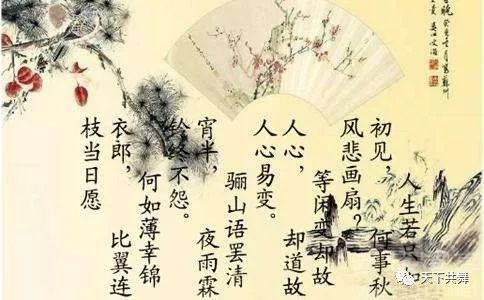 人生若只如
初见，何事秋
风悲画扇？
等闲变却故
人心，却道故
人心易变。
骊山语罢清
宵半，夜雨霖
铃终不怨。
何如薄幸锦
衣郎，比翼连
枝当日愿
天下共舞